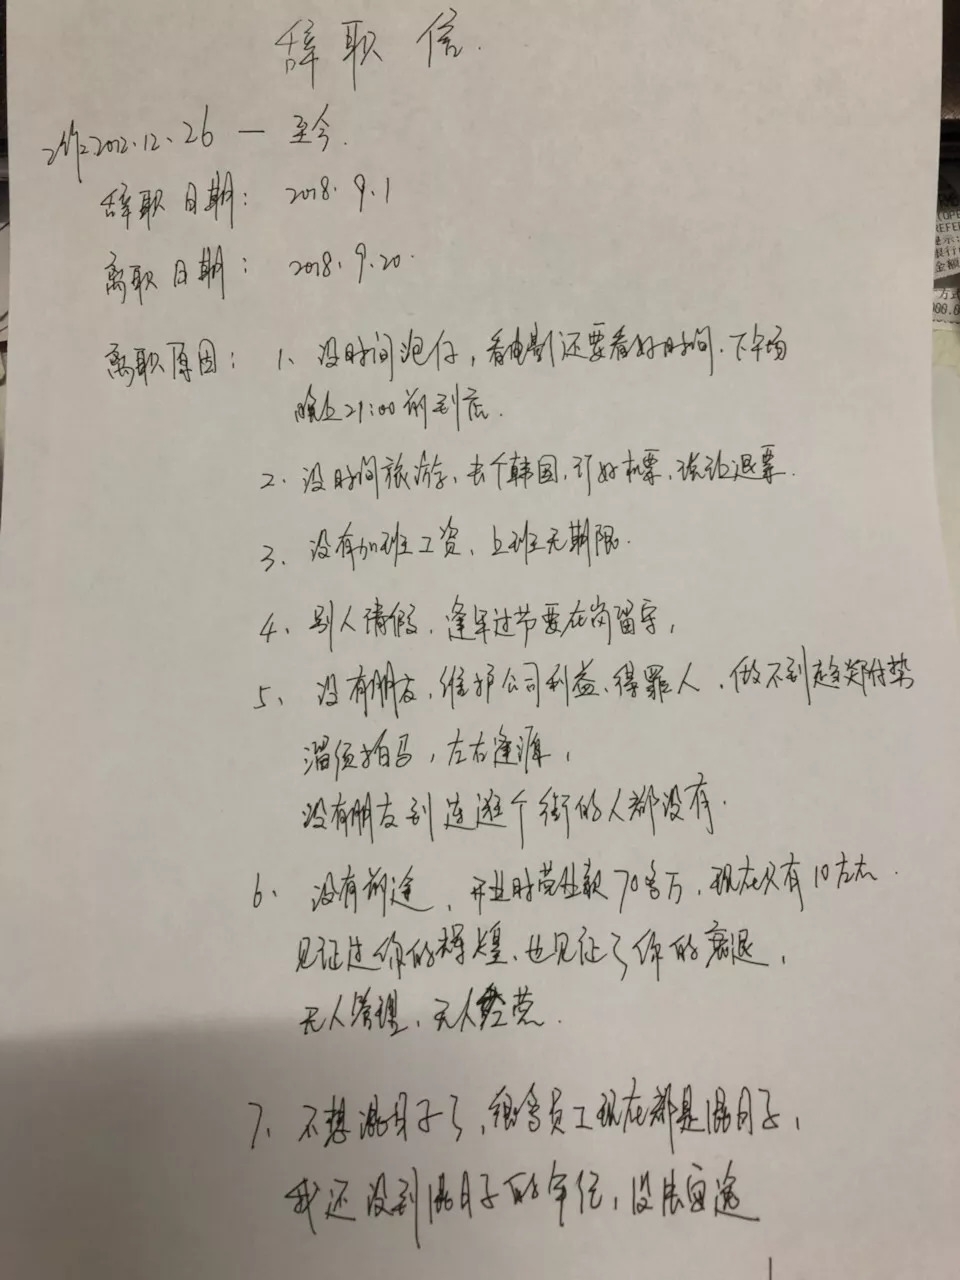 辞职信.
工作2012.12.26 — 至今.
辞职日期: 2018.9.1
离职日期: 2018.9.20.
离职原因: 1、没时间泡仔,看电影还要看好时间.下午场
晚上21:00前到店.
2、没时间旅游、去个韩国,订好机票,说让退票.
3、没有加班工资、上班无期限.
4、别人请假、逢年过节要在岗留守,
5、没有朋友,维护公司利益、得罪人,做不到趋炎附势
溜须拍马,左右逢源,
没有朋友到连逛个街的人都没有.
6、没有前途、开业时营业款70多万,现在只有10左右.
见证过你的辉煌、也见证了你的衰退,
无人管理,无人经营.
7、不想混日子了,很多员工现在都是混日子,
我还没到混日子的年纪,没法
方式
金额